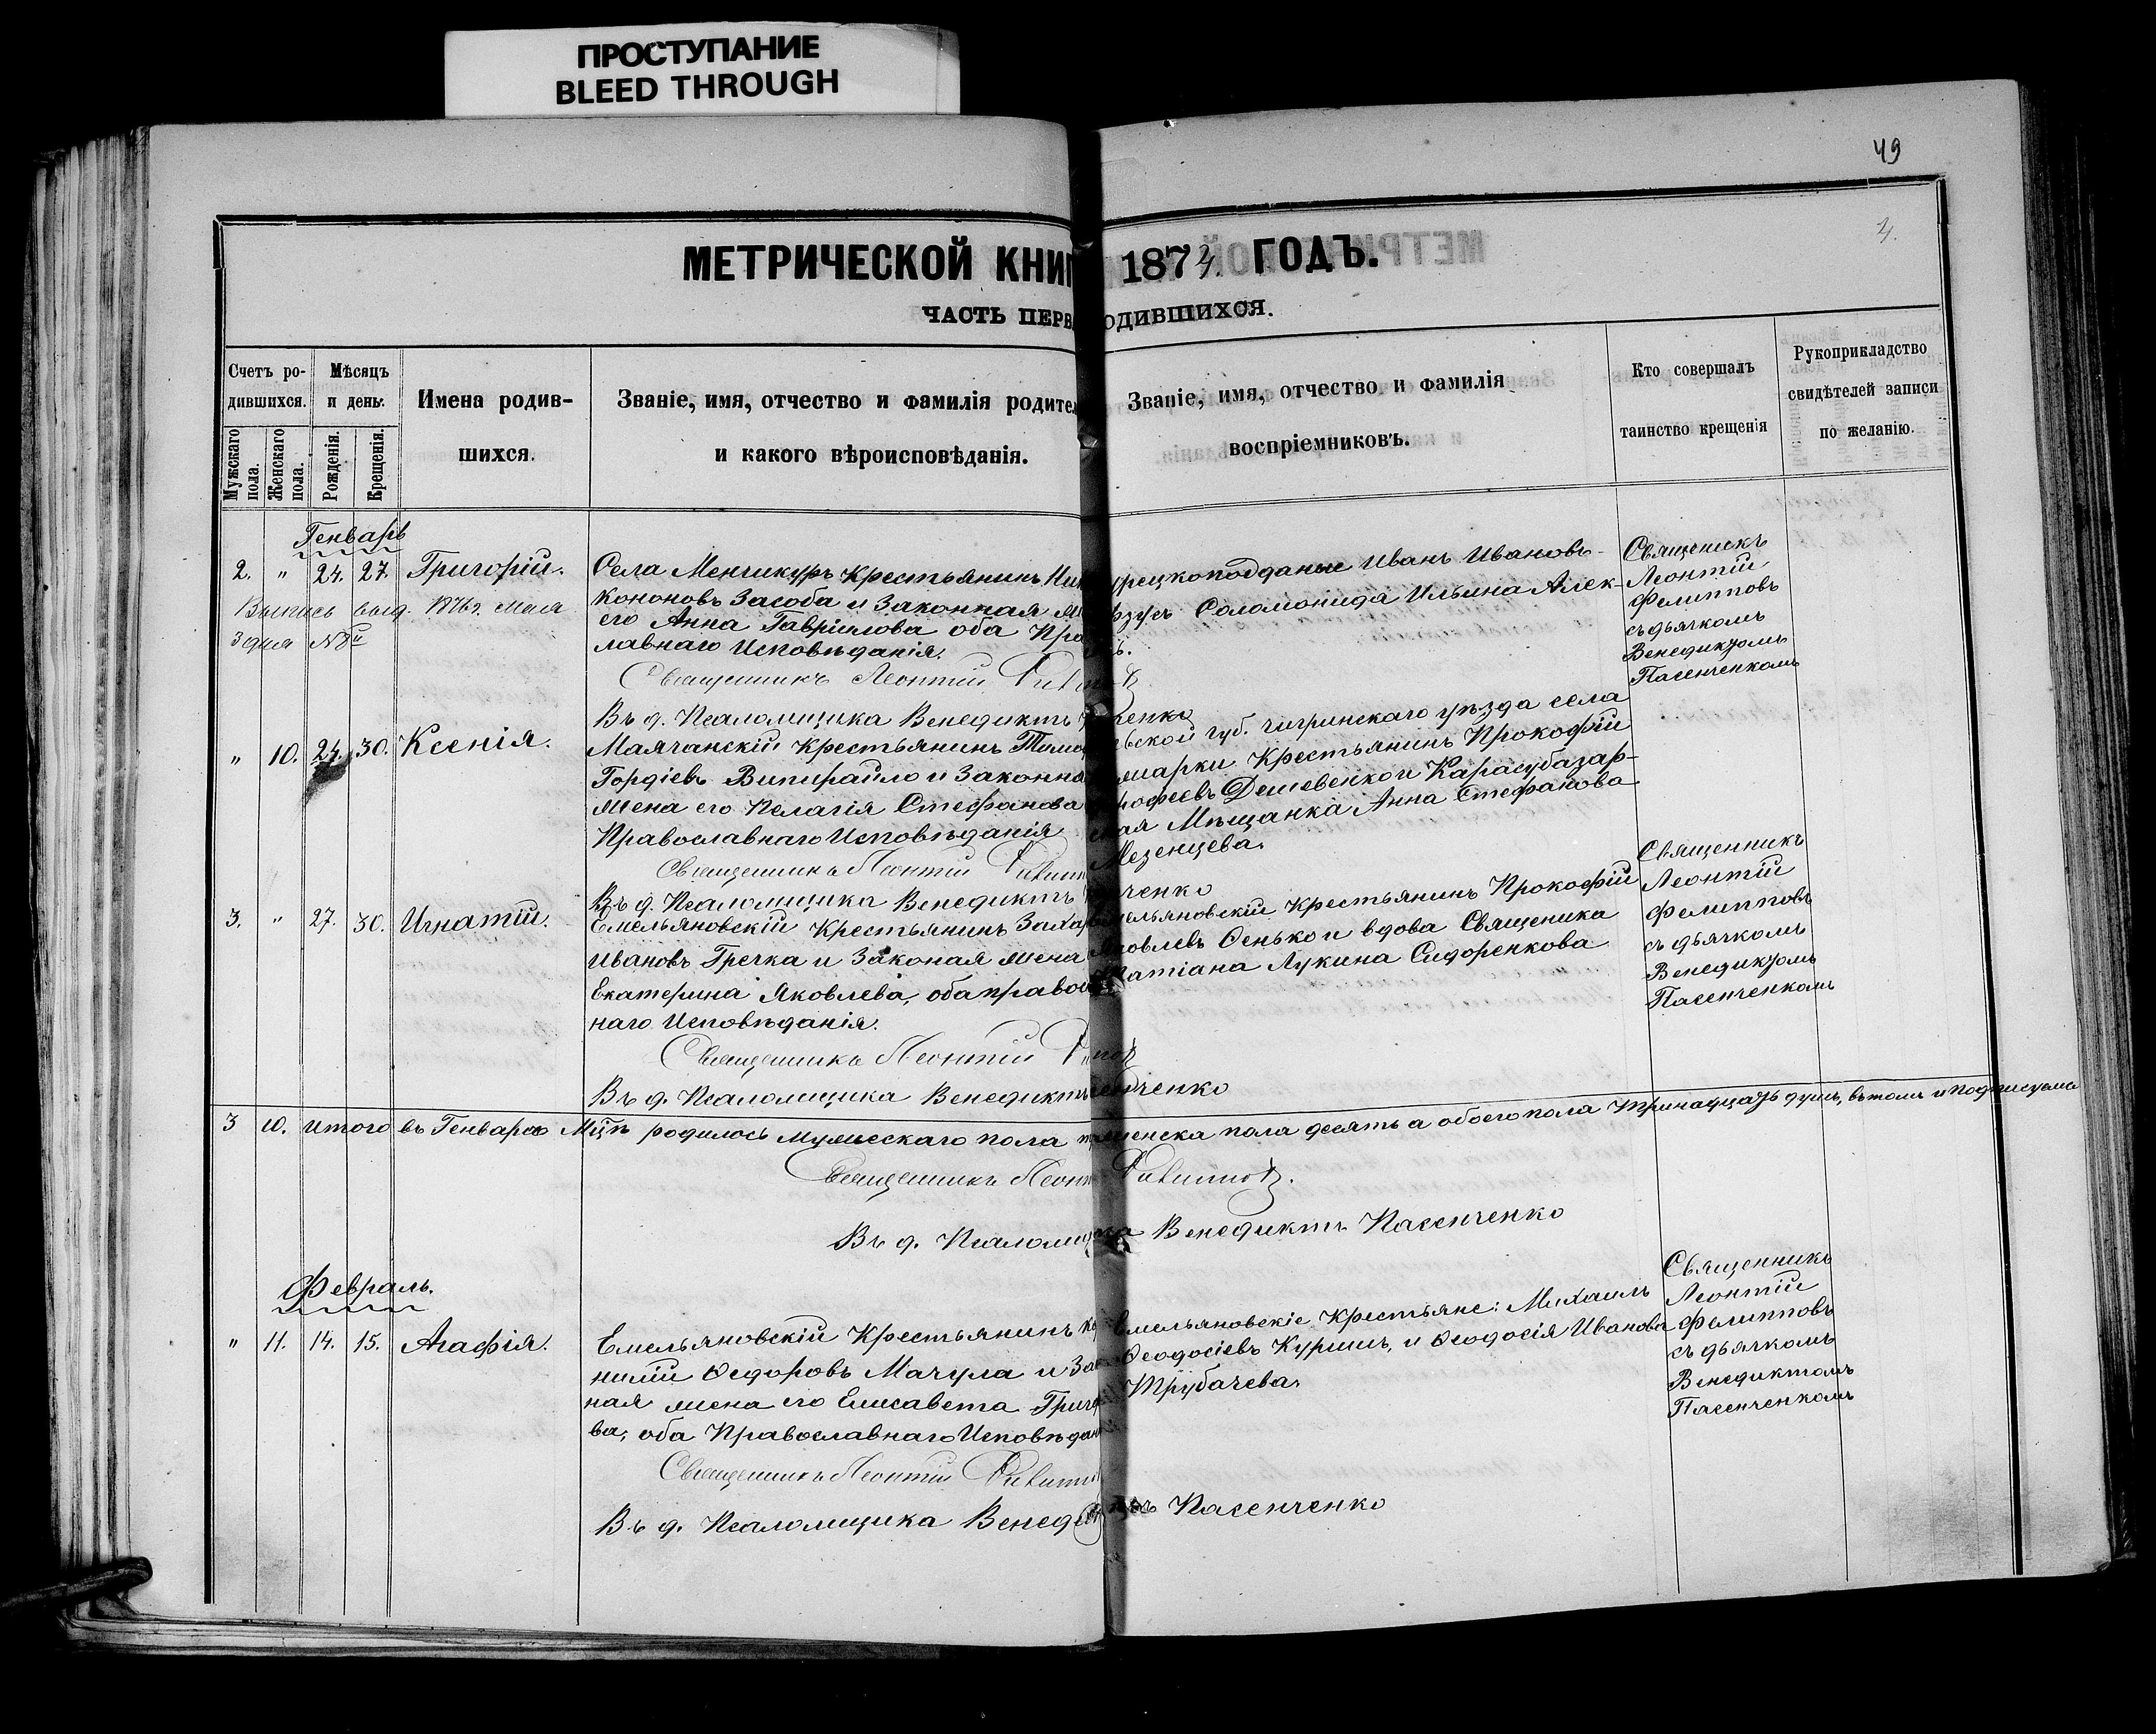 ПРОСТУПАНИЕ
BLEED THROUGH
49
4.
МЕТРИЧЕСКОЙ КНИГ 1874. ГОДЪ.
ЧАСТЬ ПЕРВ ОДИВШИХСЯ.
Счетъ ро-
дившихся.
Мужскаго пола.
Женскаго пола.
Мѣсяцъ
и день.
Рожденія.
Крещенія.
Имена родив-
шихся.
Званіе, имя, отчество и фамилія родител
и какого вѣроисповѣданія.
Званіе, имя, отчество и фамилія
воспріемниковъ.
Кто совершалъ
таинство крещенія
Рукоприкладство
свидѣтелей записи
по желанію.
Генварь
2. " 24. 27. Григорій.
Выпись выд. 1876 г. мая
3 дня №8й
Села Менчикуръ Крестьянинъ
Кононовъ Засоба и Законная
его Анна Гаврилова оба Пра
лавнаго Исповѣданія.
Священникъ Леонтій
Въ д. Псаломщика Венедиктъ енко
урецкоподданые Иванъ Ивановъ
Соломонида Ильина Алек-
Священикъ
Леонтій
Фелипповъ
съ дьячкомъ
Венедиктомъ
Пасенченкомъ
" 10. 24. 30. Ксенія.
Маячанскій Крестьянинъ
Гордіевъ Випирайло и Законна
жена его Пелагія Стефанова
Православнаго Исповѣданія
Священникъ Леонтій
Въ д. Псаломщика Венедиктъ ченко
вской губ. чигринскаго уѣзда села
марки Крестьянинъ Прокофій
рофеевъ Дешевенко и Карасубазар-
ская Мѣщанка Анна Стефанова
Мезенцева.
3. " 27. 30. Игнатій.
Емельяновскій Крестьянинъ Захар
Ивановъ Гречка и Законая жена
Екатерина Яковлева, оба право
наго Исповѣданія.
Священникъ Леонтій
Въ д. Псаломщика Венедиктъ енченко
мельяновскій Крестьянинъ Прокофій
Яковлевъ Сенько и вдова Священика
Татіана Лукина Сидоренкова
Священникъ
Леонтій
Фелипповъ
съ дьячкомъ
Венедиктомъ
Пасенченкомъ
3 10. Итого въ Генварѣ Мцѣ родилось мужескаго пола женска пола десять а обоего пола тринадцать душъ, въ томъ и подписуемся
Священникъ Леонт Филиповъ.
Въ д. Псаломщика Венедиктъ Пасенченко
Февраль.
" 11. 14. 15. Агафія.
Емельяновскій Крестьянинъ
нилій Ѳедоровъ Мачула и Зак
ная жена его Елисавета Григо
ва, оба Православнаго Исповѣдан
Священникъ Леонтій
Въ д. Псаломщика Венедиктъ Пасенченко
Емельяновскіе Крестьяне: Михаилъ
Ѳеодосіевъ Куришъ, и Ѳеодосія Иванова
Трубачева.
Священникъ
Леонтій
Фелипповъ
съ дьячкомъ
Венедиктомъ
Пасенченкомъ